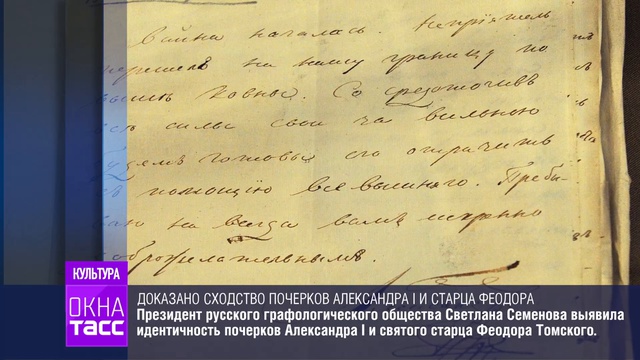 война началась. Непріятель
ерешелъ на нашу границу по
выше Ковны. Со средоточивъ
силы свои за Вильною
удемъ готовы его отразить
помощію всевышняго. Пребы-
ваю на всегда вамъ искренно
оброжелательнымъ.
КУЛЬТУРА
ОКНА
ТАСС
ДОКАЗАНО СХОДСТВО ПОЧЕРКОВ АЛЕКСАНДРА I И СТАРЦА ФЕОДОРА
Президент русского графологического общества Светлана Семенова выявила
идентичность почерков Александра I и святого старца Феодора Томского.